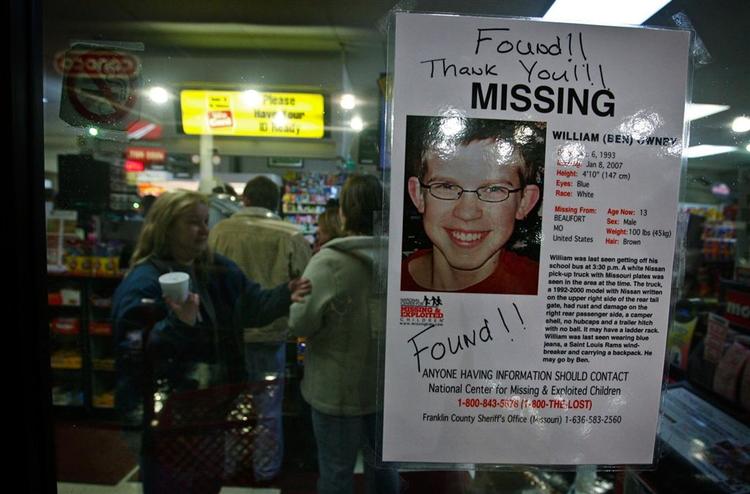 Found!!
Thank You!!!!
MISSING
WILLIAM (BEN) OWNBY
6, 1993
Jan 8, 2007
Height: 4'10" (147 cm)
Eyes: Blue
Race: White
Missing From:
BEAUFORT
MO
United States
Age Now: 13
Sex: Male
Weight: 100 lbs (45kg)
Hair: Brown
William was last seen getting off his
school bus at 3:30 p.m. A white Nissan
pick-up truck with Missouri plates was
seen in the area at the time. The truck,
a 1992-2000 model with Nissan written
on the upper right side of the rear tail
gate, had rust and damage on the
right rear passenger side, a camper
shell, no hubcaps and a trailer hitch
with no ball. It may have a ladder rack.
William was last seen wearing blue
jeans, a Saint Louis Rams wind-
breaker and carrying a backpack. He
may go by Ben.
MISSING &
EXPLOITED
CHILDREN
Found!!
ANYONE HAVING INFORMATION SHOULD CONTACT
National Center for Missing & Exploited Children
1-800-843-5678 (1-800-THE-LOST)
Franklin County Sheriff's Office (Missouri) 1-636-583-2560
Please
Have Your
ID Ready